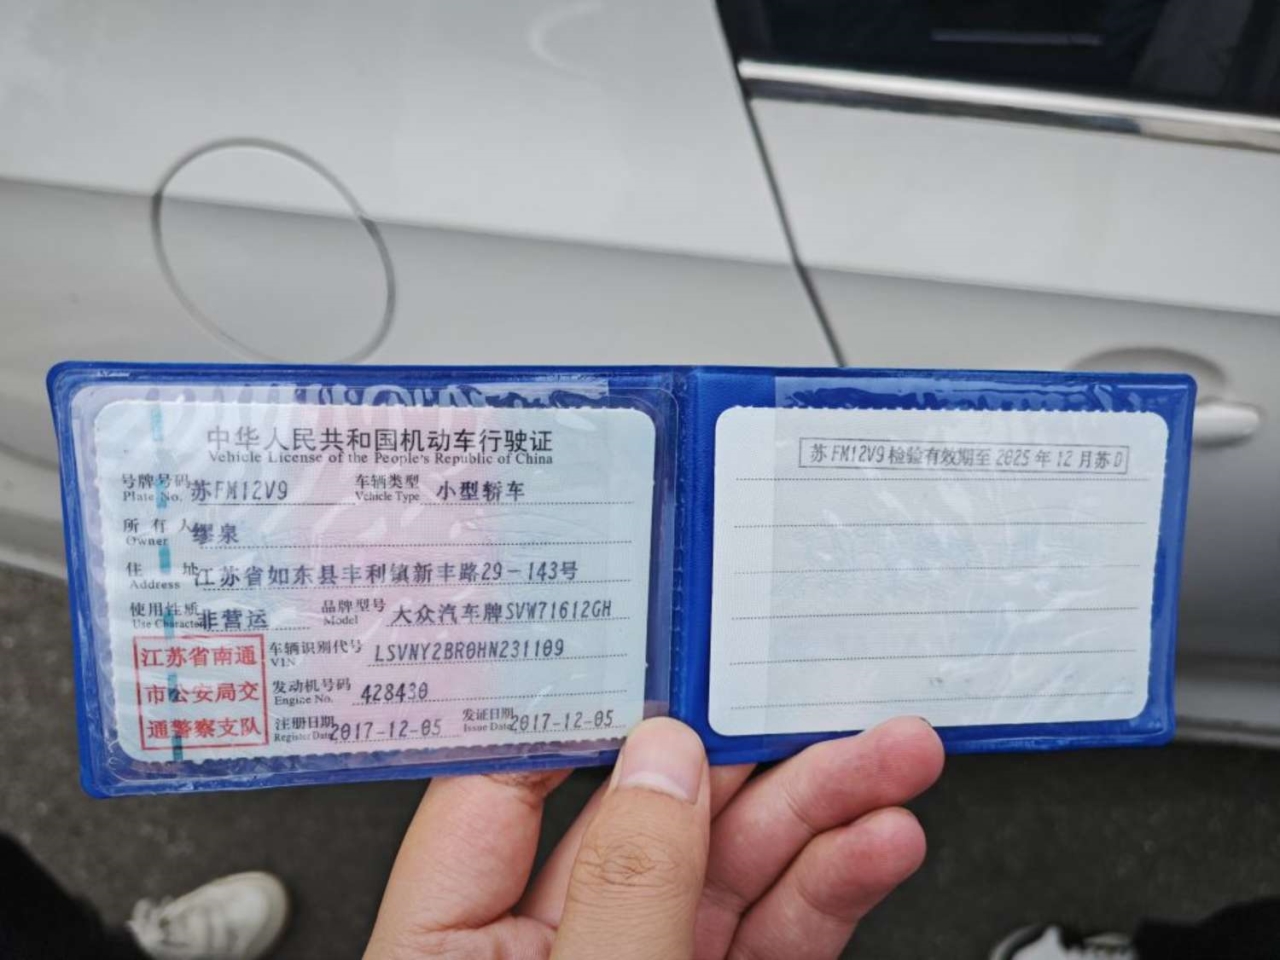 中华人民共和国机动车行驶证
Vehicle License of the People's Republic of China
号牌号码 苏FM12V9 车辆类型 小型轿车
Plate No. Vehicle Type
所有人 缪泉
Owner
住址 江苏省如东县丰利镇新丰路29-143号
Address
使用性质 非营运 品牌型号 大众汽车牌SVW71612GH
Use Character Model
江苏省南通
市公安局交
通警察支队
车辆识别代号 LSVNY2BR0HN231109
VIN
发动机号码 428430
Engine No.
注册日期 2017-12-05 发证日期 2017-12-05
Register Date Issue Date
苏FM12V9检验有效期至2025年12月苏D